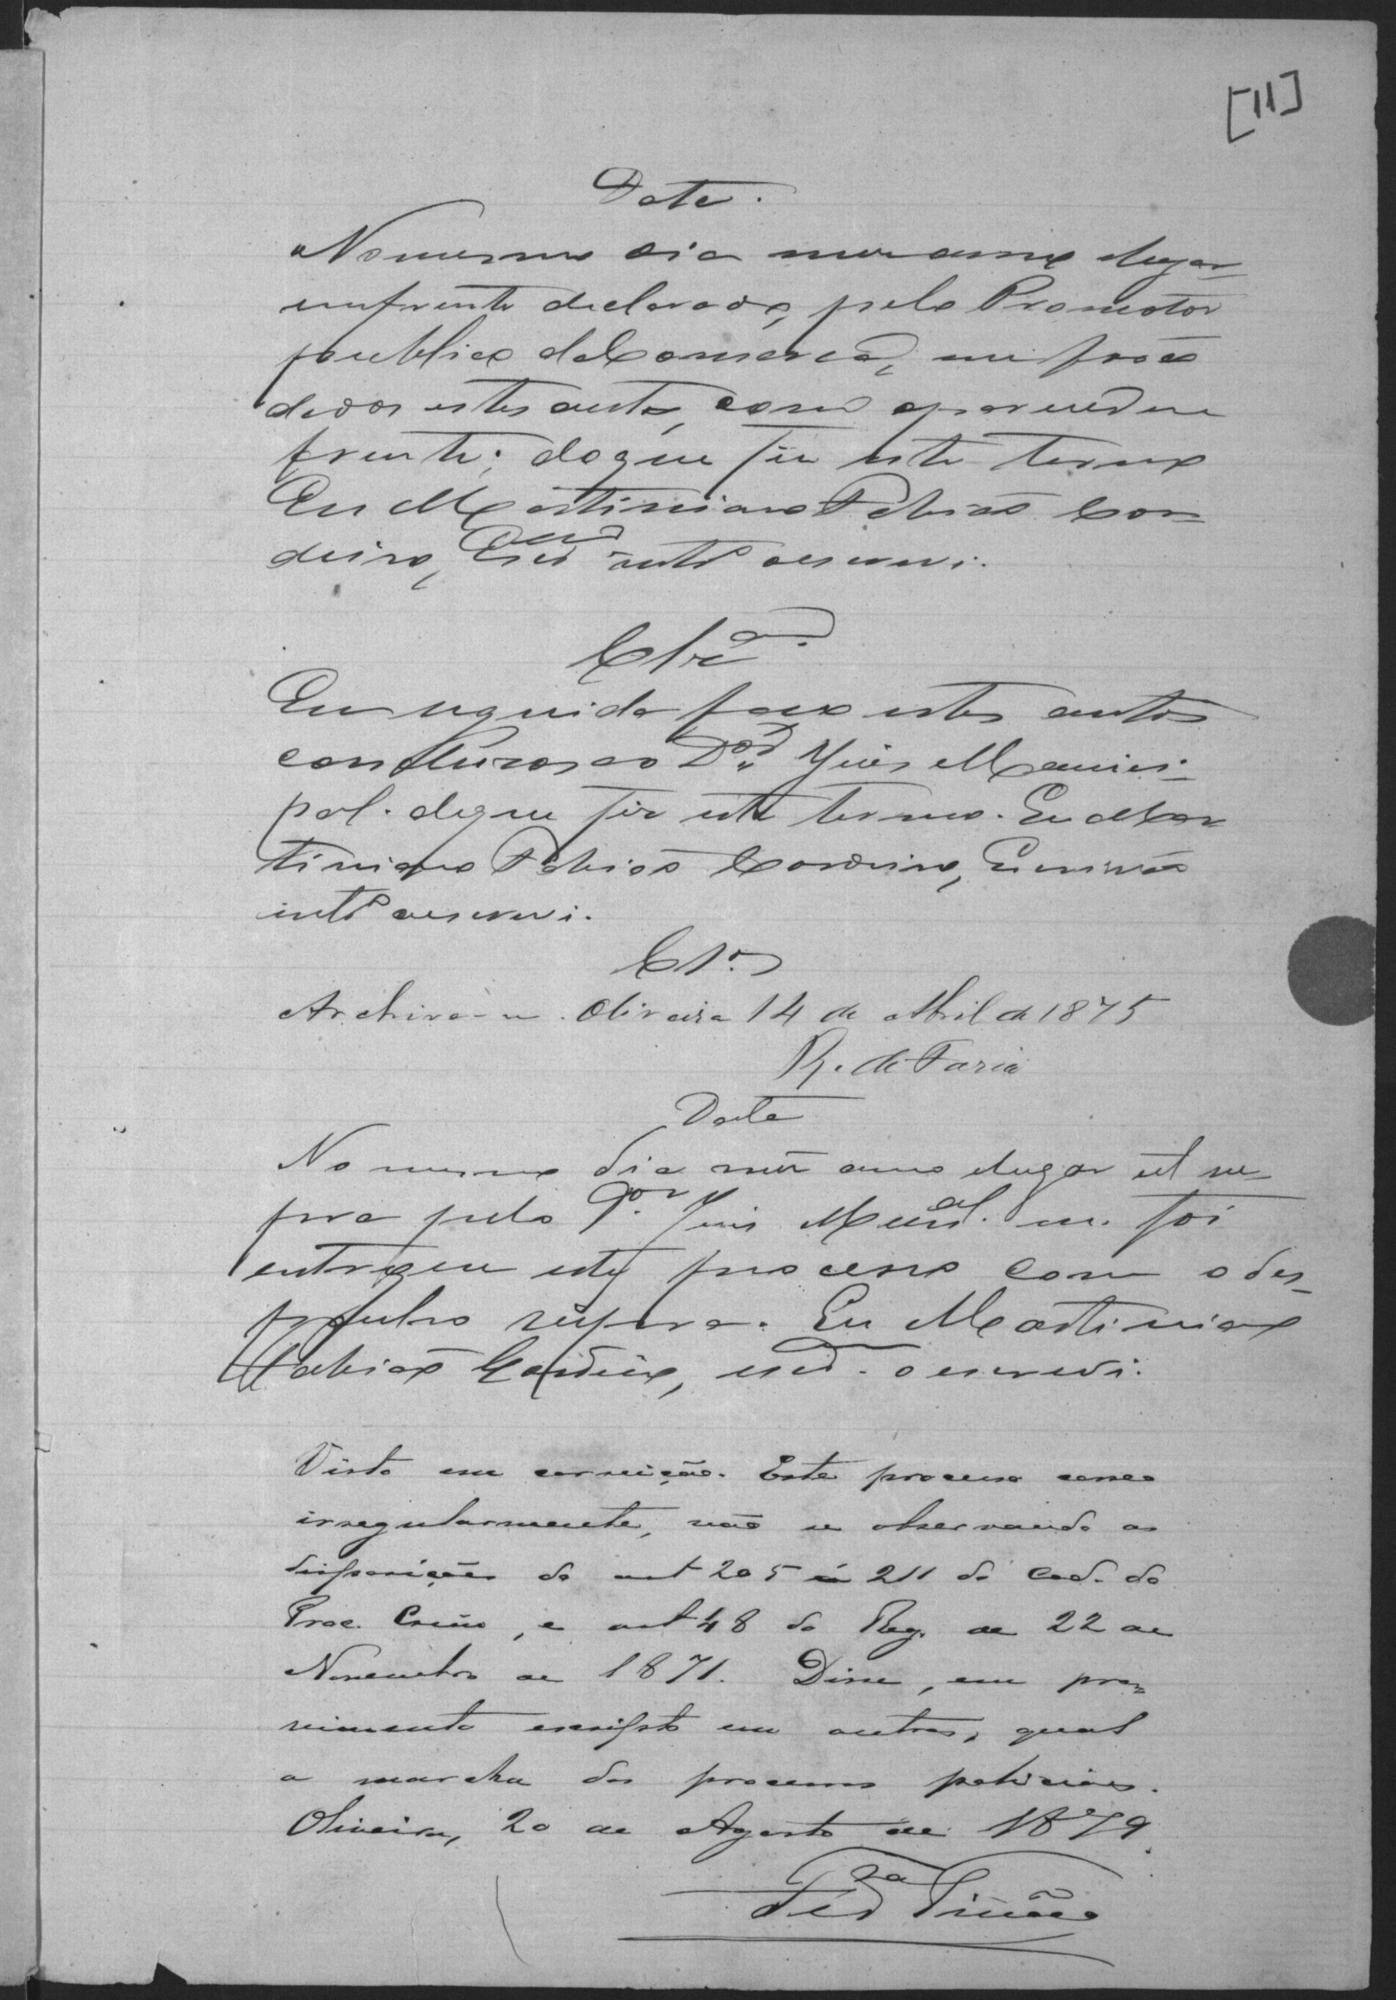 [11]
Data.
No mesmo dia mez anno e lugar
enfrente declarado, pelo Promotor
publico da Comarca, me forão
dados estes autos, como aparecem
frente; do que fiz este termo
Eu Martiniano Tobias Cor-
deiro, Escr.am intr.o o escrevi.
Cls.am
Em seguida faço estes autos
conclusos ao D.or Juis Munici-
pal. do que fiz este termo. Eu Mar
tiniano Tobias Cordeiro, Escrivão
int.o o escrevi.
Cls.
Archive-se. Oliveira 14 de Abril de 1875
R. de Faria
Data
No mesmo dia mez anno e lugar su-
pra pelo D.or Juis Mun.al me foi
entregue este processo com o des-
pacho supra. Eu Martiniano
Tobias Cordeiro, escr.am o escrevi.
Visto em correição. Este processo correo
irregularmente, não se observando as
disposições do art 205 á 211 do Cod. do
Proc. Crime, e art 48 do Reg. de 22 de
Novembro de 1871. Disse, em pro-
vimento escripto em outros, qual
a marcha dos processos policiaes.
Oliveira, 20 de Agosto de 1879.